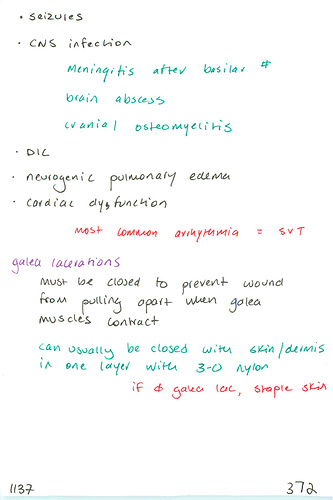 • seizures
• CNS infection
meningitis after basilar #
brain abscess
cranial osteomyelitis
• DIC
• neurogenic pulmonary edema
• cardiac dysfunction
most common arrhythmia = SVT
galea lacerations
must be closed to prevent wound
from pulling apart when galea
muscles contract
can usually be closed with skin/dermis
in one layer with 3-0 nylon
if ϕ galea lac, staple skin
1137
372